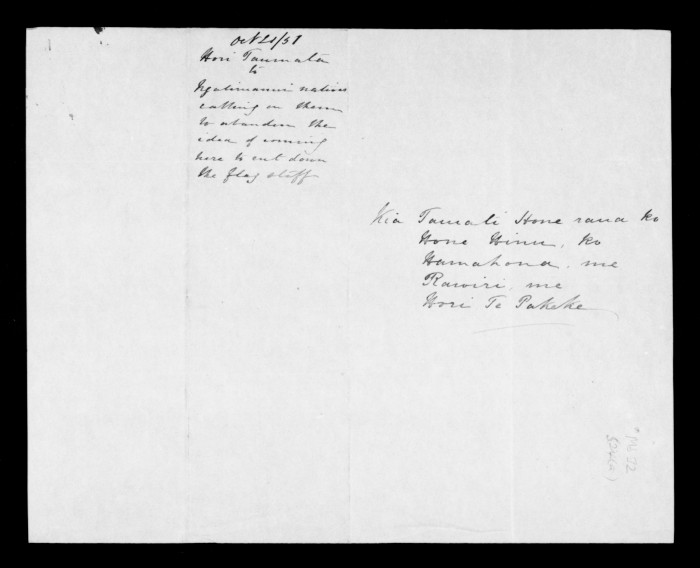 Oct 21/51
Hori Taumata
to
Ngatimanu natives
calling on them
to abandon the
idea of coming
here to cut down
the flag staff
Kia Tamati Hone raua ko
Hone Winu, ko
Hamahona, me
Rawiri, me
Hori Te Pakeke